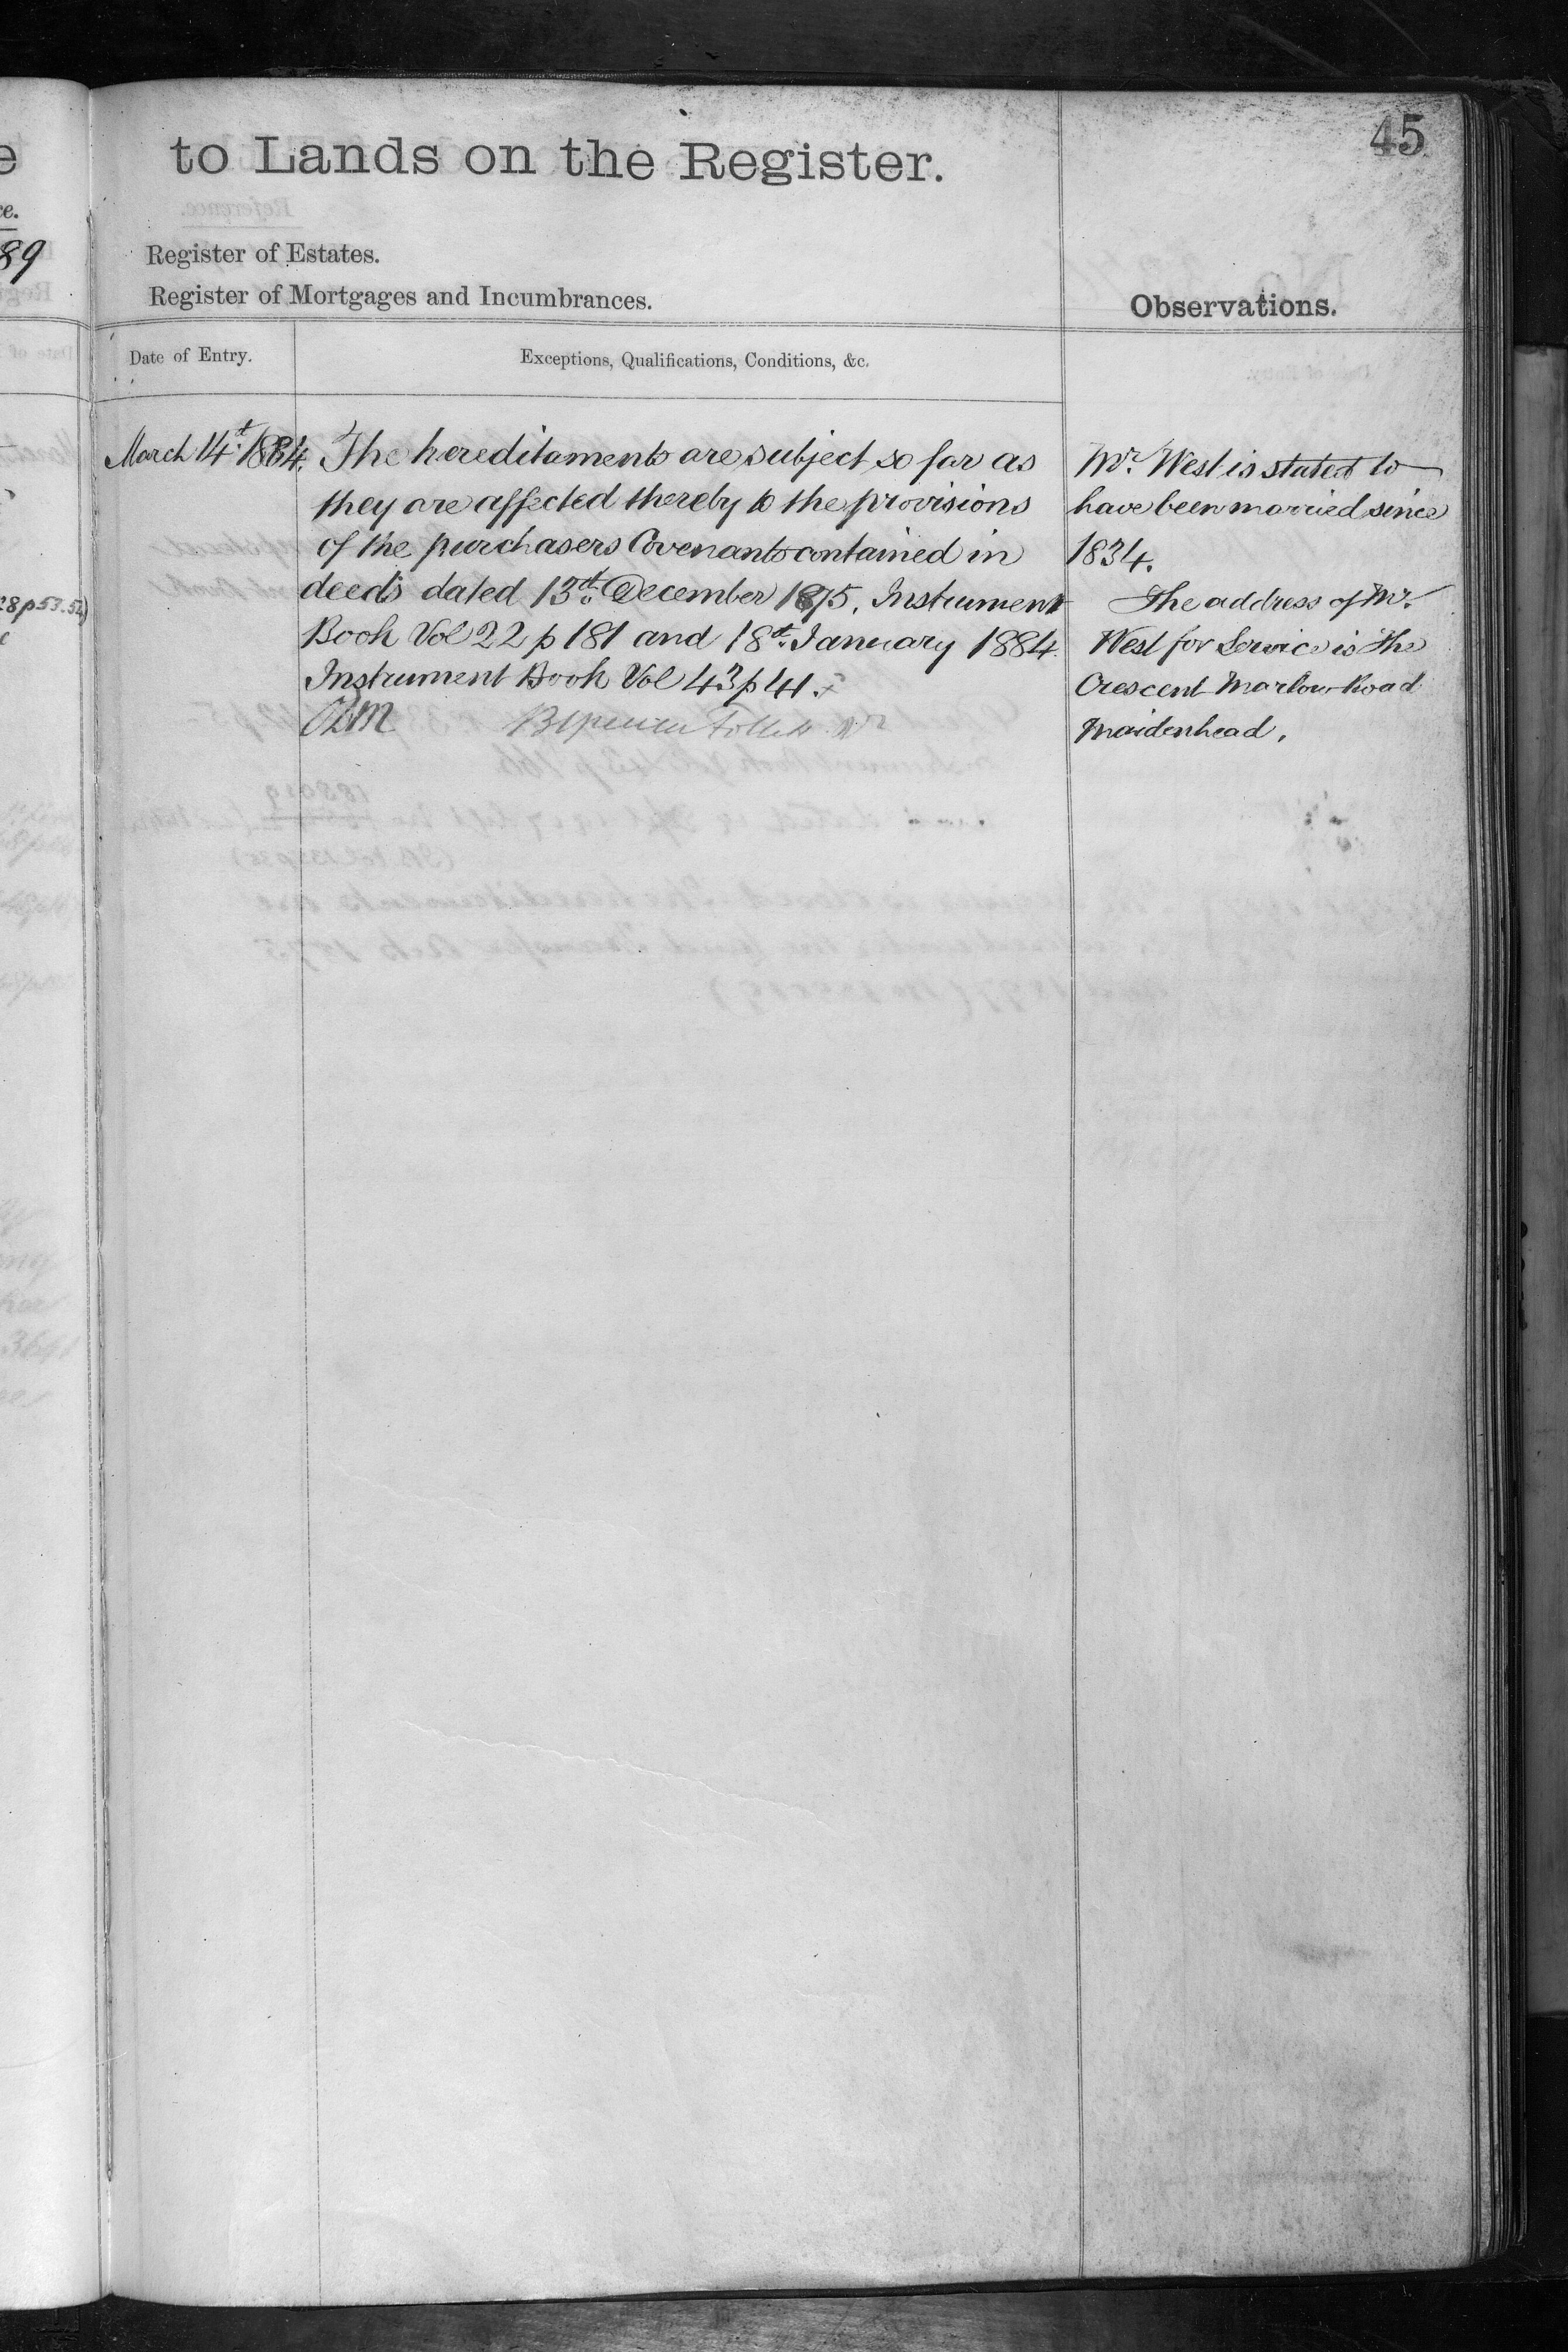 45
to Lands on the Register.
Register of Estates.
Register of Mortgages and Incumbrances.
Observations.
Date of Entry.
Exceptions, Qualifications, Conditions, &c.
March 14th 1884.
The hereditaments are subject so far as
they are affected thereby to the provisions
of the purchasers Covenants contained in
deeds dated 13th December 1875. Instrument
Book Vol 22 p 181 and 18th January 1884
Instrument Book Vol 43 p 41.
Mr. West is stated to
have been married since
1834.
The address of Mr.
West for Service is The
Crescent Marlow Road
Maidenhead.
89